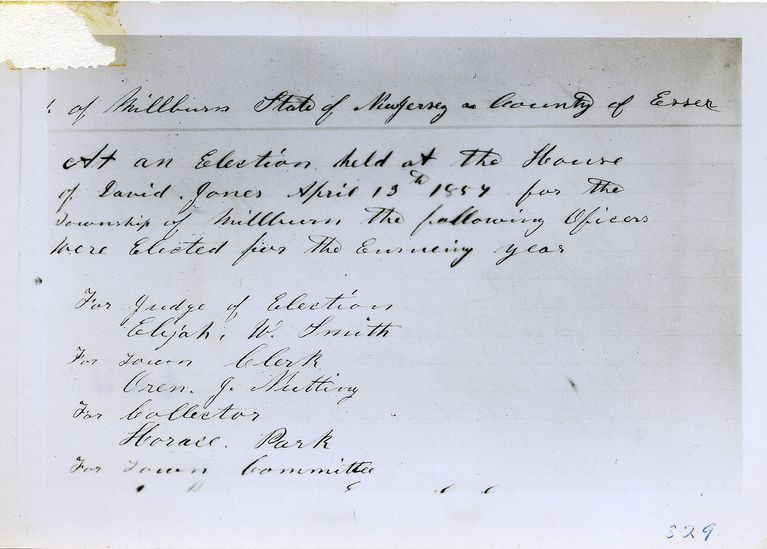 of Millburn State of New Jersey in County of Essex
At an Election held at the House
of David Jones April 13th 1857 for the
Township of Millburn the following Oficers
Were Elected for the Ensueing year
For Judge of Election
Elijah, W. Smith
For Town Clerk
Oren. J. Nutting
For Collector
Horace. Park
For Town Committee
329